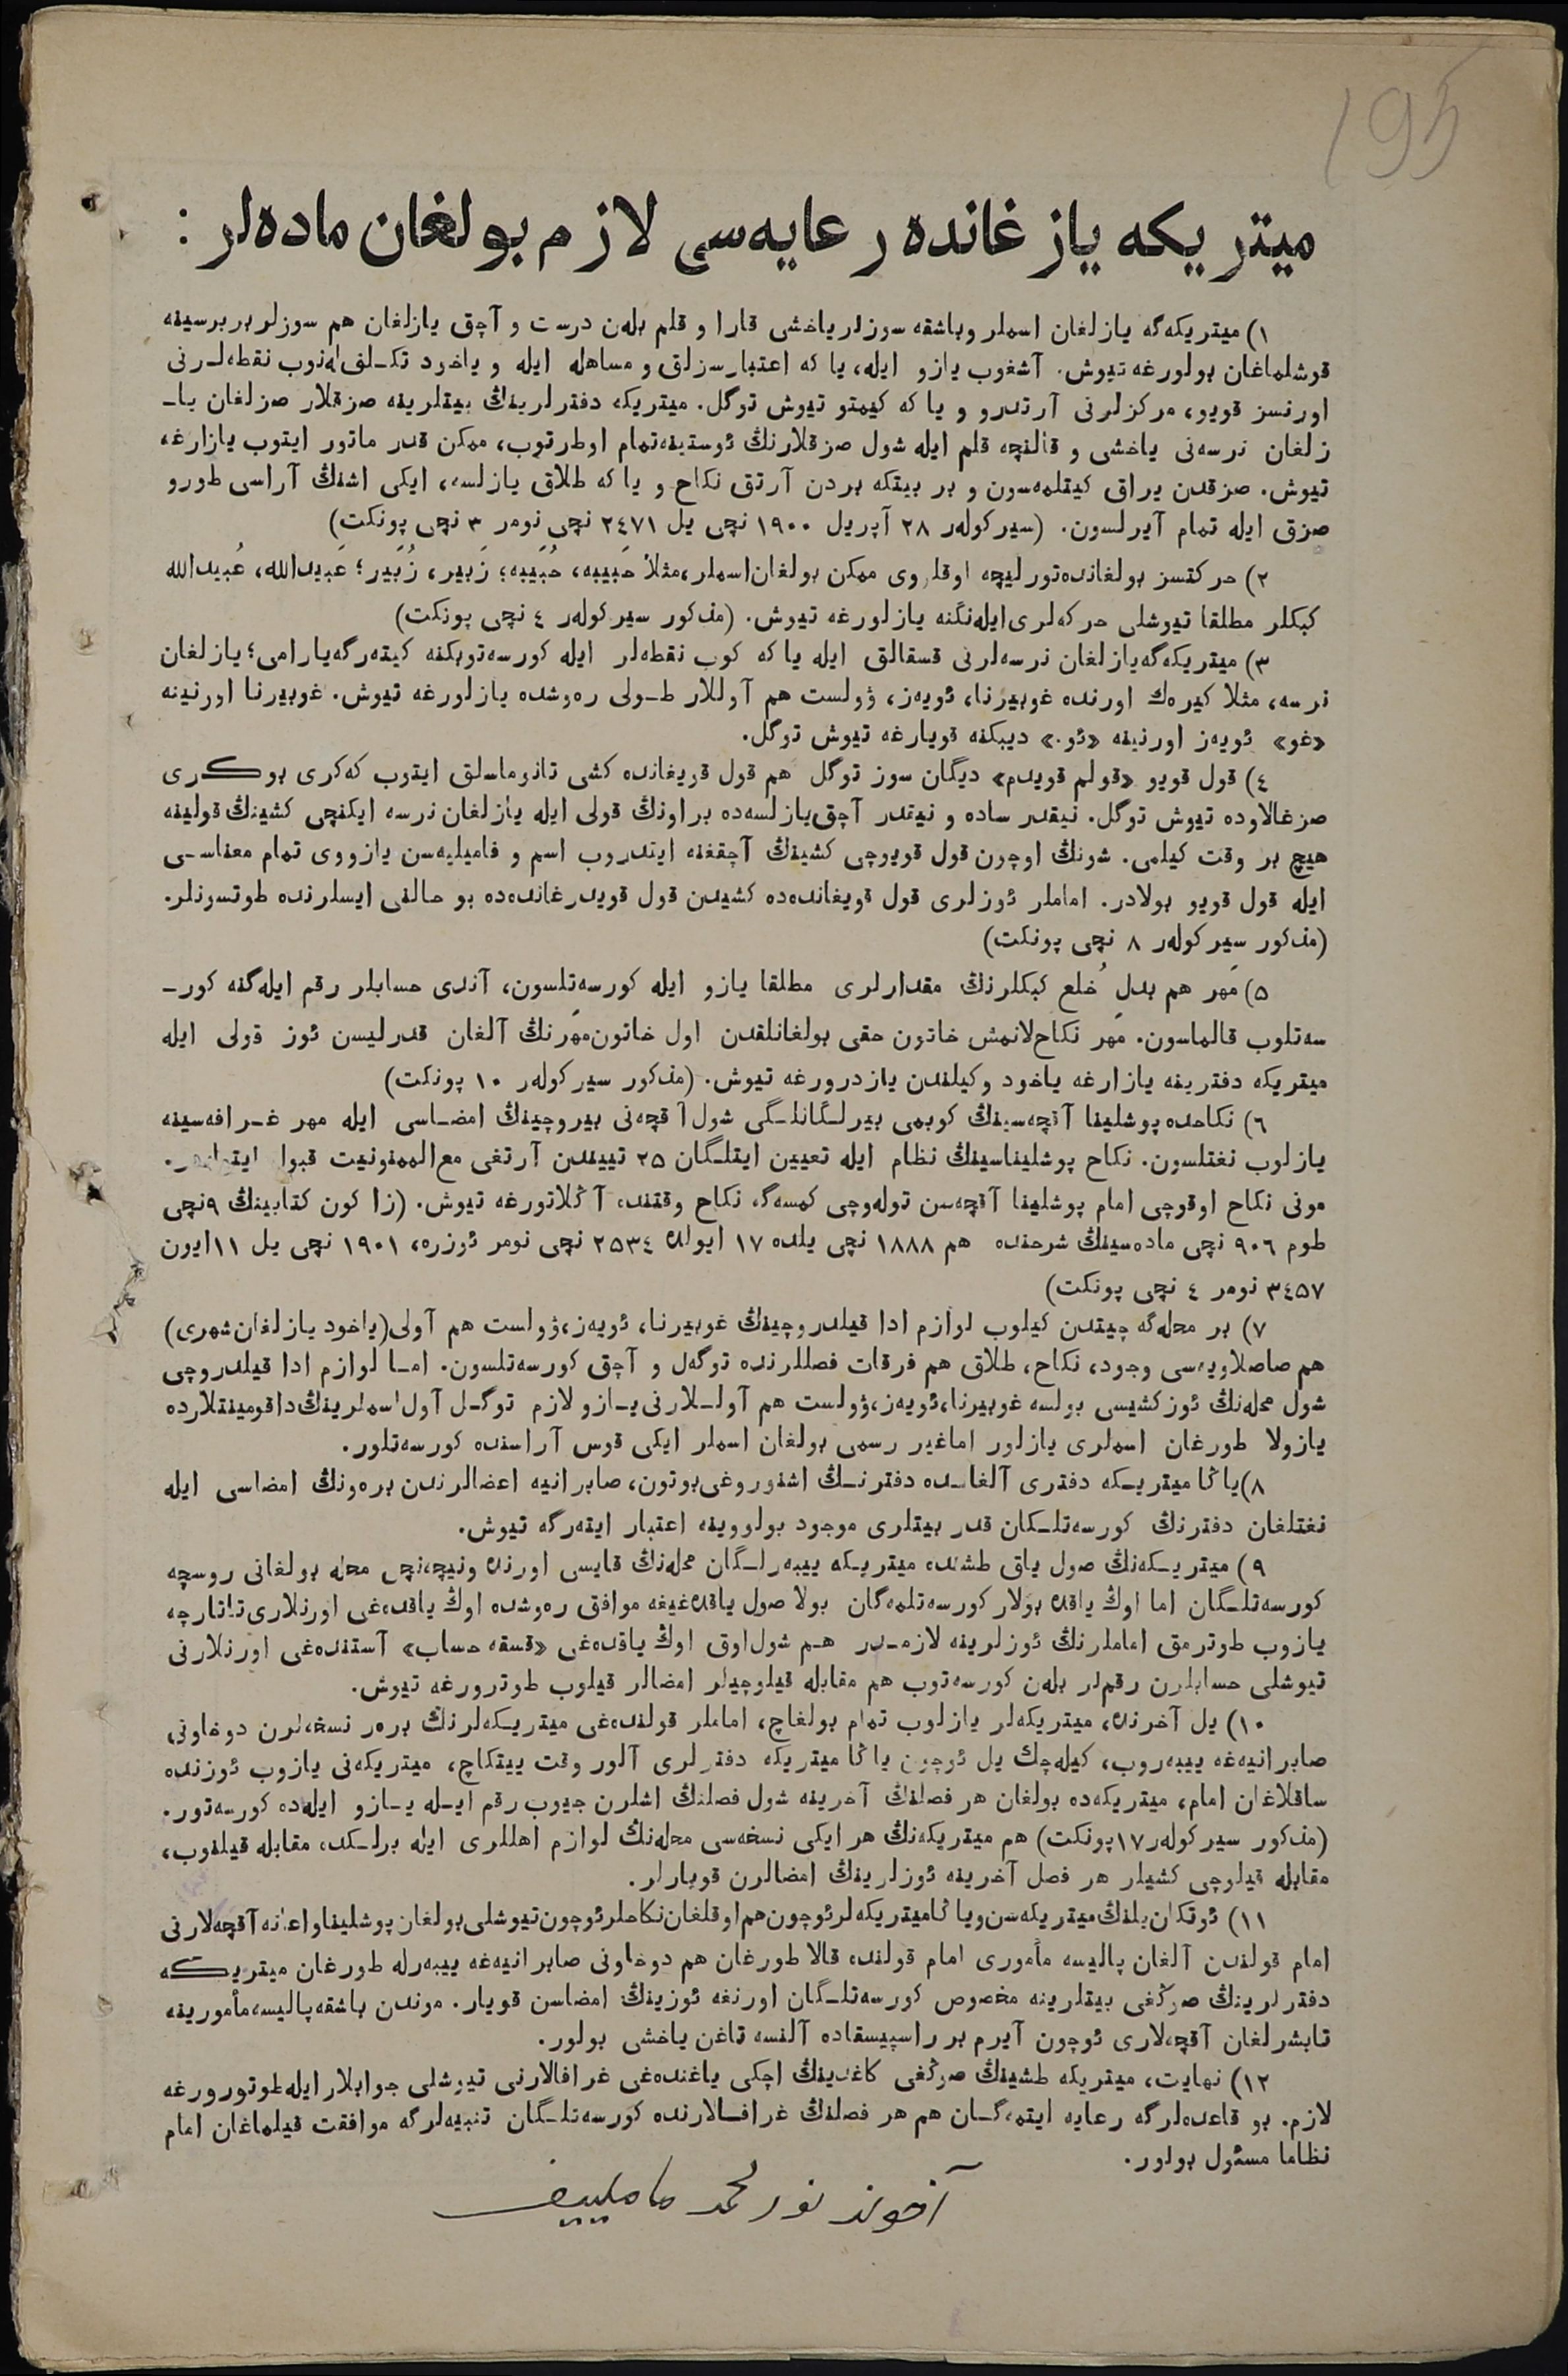 195
ميتريكه يازغانده رعايه‌سى لازم بولغان ماده‌لر :
١) ميتريكه‌گه يازلغان اسملر وباشقه سوزلرياخشى قارا و قلم بلەن درست و آچق يازلغان هم سوزلر بربرسينه
قوشلماغان بولورغه تيوش. آشغوب يازو ايله، يا كه اعتبارسزلق و مساهله ايله و ياخود تكـلف‌له‌نوب نقطه‌لـرنى
اورنسز قويو، مركزلرنى آرتدرو و يا كه كيمتو تيوش توگل. ميتريكه دفترلرينڭ بيتلرينه صزقلار صزلغان ياـ
زلغان نرسه‌نى ياخشى و قالنچه قلم ايله شول صزقلارنڭ ئوستينه‌تمام اوطرتوب، ممكن قدر ماتور ايتوب يازارغه
تيوش. صزقدن يراق كيتلمه‌سون و بر بيتكه بردن آرتق نكاح و يا كه طلاق يازلسه، ايكى اشنڭ آراسى طورو
صزق ايله تمام آيرلسون. (سيركولەر ٢٨ آپريل ١٩٠٠ نچى يل ٢٤٧١ نچى نومر ٣ نچى پونكت)
٢) حركتسز بولغانده‌تورليچه اوقلـروى ممكن بولغان‌اسملر،مثلاً حَبيبه، حُبَيبه؛ زَبير، زُبَير؛ عَبيدالله، عُبيدالله
كبكلر مطلقا تيوشلى حركه‌لرى‌ايله‌نگنه يازلورغه تيوش. (مذكور سيركولەر ٤ نچى پونكت)
٣) ميتريكه‌گه‌يازلغان نرسه‌لرنى قسقالق ايله يا كه كوب نقطه‌لر ايله كورسه‌توبكنه كيته‌رگه‌يارامى؛ يازلغان
نرسه، مثلا كيرەك اورنده غوبيرنا، ئويەز، ۋولست هم آوللار طـولى رەوشده يازلورغه تيوش. غوبيرنا اورنينه
«غو» ئويەز اورنينه «ئو.» ديبكنه قويارغه تيوش توگل.
٤) قول قويو «قولم قويدم» ديگان سوز توگل هم قول قويغانده كشى تانوماسلق ايتوب كه‌كرى بوكرى
صزغالاوده تيوش توگل. نيقدر ساده و نيقدر آچق‌يازلسه‌ده براونڭ قولى ايله يازلغان نرسه ايكنچى كشينڭ قولينه
هيچ بر وقت كيلمى. شونڭ اوچون قول قويوچى كشينڭ آچقغنه ايتدروب اسم و فاميليه‌سن يازووى تمام معناسـى
ايله قول قويو بولادر. اماملر ئوزلرى قول قويغانده‌ده كشيدن قول قويدرغانده‌ده بو حالنى ايسلرنده طوتسونلر.
(مذكور سيركولەر ٨ نچى پونكت)
٥) مَهر هم بدلِ خُلع كبكلرنڭ مقدارلرى مطلقا يازو ايله كورسه‌تلسون، آندى حسابلر رقم ايله‌گنه كورـ
سه‌تلوب قالماسون. مَهر نكاح‌لانمش خاتون حقى بولغانلقدن اول خاتون‌مهرنڭ آلغان قدرليسن ئوز قولى ايله
ميتريكه دفترينه يازارغه ياخود وكيلندن يازدرورغه تيوش. (مذكور سيركولەر ١٠ پونكت)
٦) نكاحده پوشلينا آقچه‌سينڭ كوبمى بيرلـگانلـگى شول‌آقچه‌نى بيروچينڭ امضـاسى ايله مهر غـرافه‌سينه
يازلوب نغتلسون. نكاح پوشليناسينڭ نظام ايله تعيين ايتلـگان ٢٥ تييندن آرتغى مع‌الممنونيت قبول
مونى نكاح اوقوچى امام پوشلينا آقچه‌سن توله‌وچى كمسه‌گه نكاح وقتنده آڭلاتورغه تيوش. (زاكون كتابينڭ ٩نچى
طوم ٩٠٦ نچى ماده‌سينڭ شرحنده هم ١٨٨٨ نچى يلده ١٧ ايولده ٢٥٣٤ نچى نومر ئوزره، ١٩٠١ نچى يل ١١ايون
٣٤٥٧ نومر ٤ نچى پونكت)
٧) بر محله‌گه چيتدن كيلوب لوازم ادا قيلدروچينڭ غوبيرنا، ئويەز،ۋولست هم آولى(ياخود يازلغان‌شهرى)
هم صاصلاويه‌سى وجود، نكاح، طلاق هم فرقات فصللرنده توگەل و آچق كورسه‌تلسون. امـا لوازم ادا قيلدروچى
شول محله‌نڭ ئوزكشيسى بولسه غوبيرنا،ئويەز،ۋولست هم آولـلارنى‌يـازو لازم توگـل آول‌اسملرينڭ‌داقومينتلارده
يازولا طورغان اسملرى يازلور اماغير رسمى بولغان اسملر ايكى قوس آراسنده كورسه‌تلور.
٨)ياڭا ميتريـكه دفترى آلغانـده دفترنـڭ اشنوروغى‌بوتون، صابرانيه اعضالرندن برەونڭ امضاسى ايله
نغتلغان دفترنڭ كورسه‌تلـكان قدر بيتلرى موجود بولووينه اعتبار ايته‌رگه تيوش.
٩) ميتريـكه‌نڭ صول ياق طشنده ميتريـكه ييبه‌رلـگان محله‌نڭ قايسى اورنده ونيچه‌نچى محله بولغانى روسچه
كورسه‌تلـگان اما اوڭ ياقده بولار كورسه‌تلمه‌گان بولا صول ياقده‌غيغه موافق رەوشده اوڭ ياقده‌غى اورنلارى‌تاتارچه
يازوب طوترمق اماملرنڭ ئوزلرينه لازمـدر هـم شول‌اوق اوڭ ياقده‌غى «قسقه حساب» آستنده‌غى اورنلارنى
تيوشلى حسابلرن رقملر بلەن كورسه‌توب هم مقابله قيلوچيلر امضالر قيلوب طوترورغه تيوش.
١٠) يل آخرنده، ميتريكه‌لر يازلوب تمام بولغاچ، اماملر قولنده‌غى ميتريـكه‌لرنڭ برەر نسخه‌لرن دوخاونى
صابرانيه‌غه ييبه‌روب، كيله‌چك يل ئوچون ياڭا ميتريكه دفترلرى آلور وقت ييتكاچ، ميتريكه‌نى يازوب ئوزنده
ساقلاغان امام، ميتريكه‌ده بولغان هر فصلنڭ آخرينه شول فصلنڭ اشلرن جيوب رقم ايـله يـازو ايله‌ده كورسه‌تور.
(مذكور سيركولەر ١٧پونكت) هم ميتريكه‌نڭ هر ايكى نسخه‌سى محله‌نڭ لوازم اهللرى ايله برلـكده مقابله قيلنوب،
مقابله قيلوچى كشيلر هر فصل آخرينه ئوزلرينڭ امضالرن قويارلر.
١١) ئوتكان‌يلنڭ‌ميتريكه‌سن‌وياڭاميتريكه‌لرئوچون‌هم‌اوقلغان‌نكاحلرئوچون‌تيوشلى‌بولغان‌پوشليناواعانه‌آقچه‌لارنى
امام قولندن آلغان پاليسه مأمورى امام قولنده قالا طورغان هم دوخاونى صابرانيه‌غه ييبه‌رله طورغان ميتريـكه
دفترلرينڭ صوڭغى بيتلرينه مخصوص كورسه‌تلـگان اورنغه ئوزينڭ امضاسن قويار. موندن باشقه‌پاليسه‌مأمورينه
تابشرلغان آقچه‌لارى ئوچون آيرم بر راسپيسقاده آلنسه تاغن ياخشى بولور.
١٢) نهايت، ميتريكه طشينڭ صوڭغى كاغدينڭ اچكى ياغنده‌غى غرافالارنى تيوشلى جوابلار ايله‌طوتورورغه
لازم. بو قاعده‌لرگه رعايه ايتمه‌گـان هم هر فصلنڭ غرافـالارنده كورسه‌تلـگان تنبيه‌لرگه موافقت قيلماغان امام
نظاما مسئول بولور.
آخوند نورمحمد مامليیف